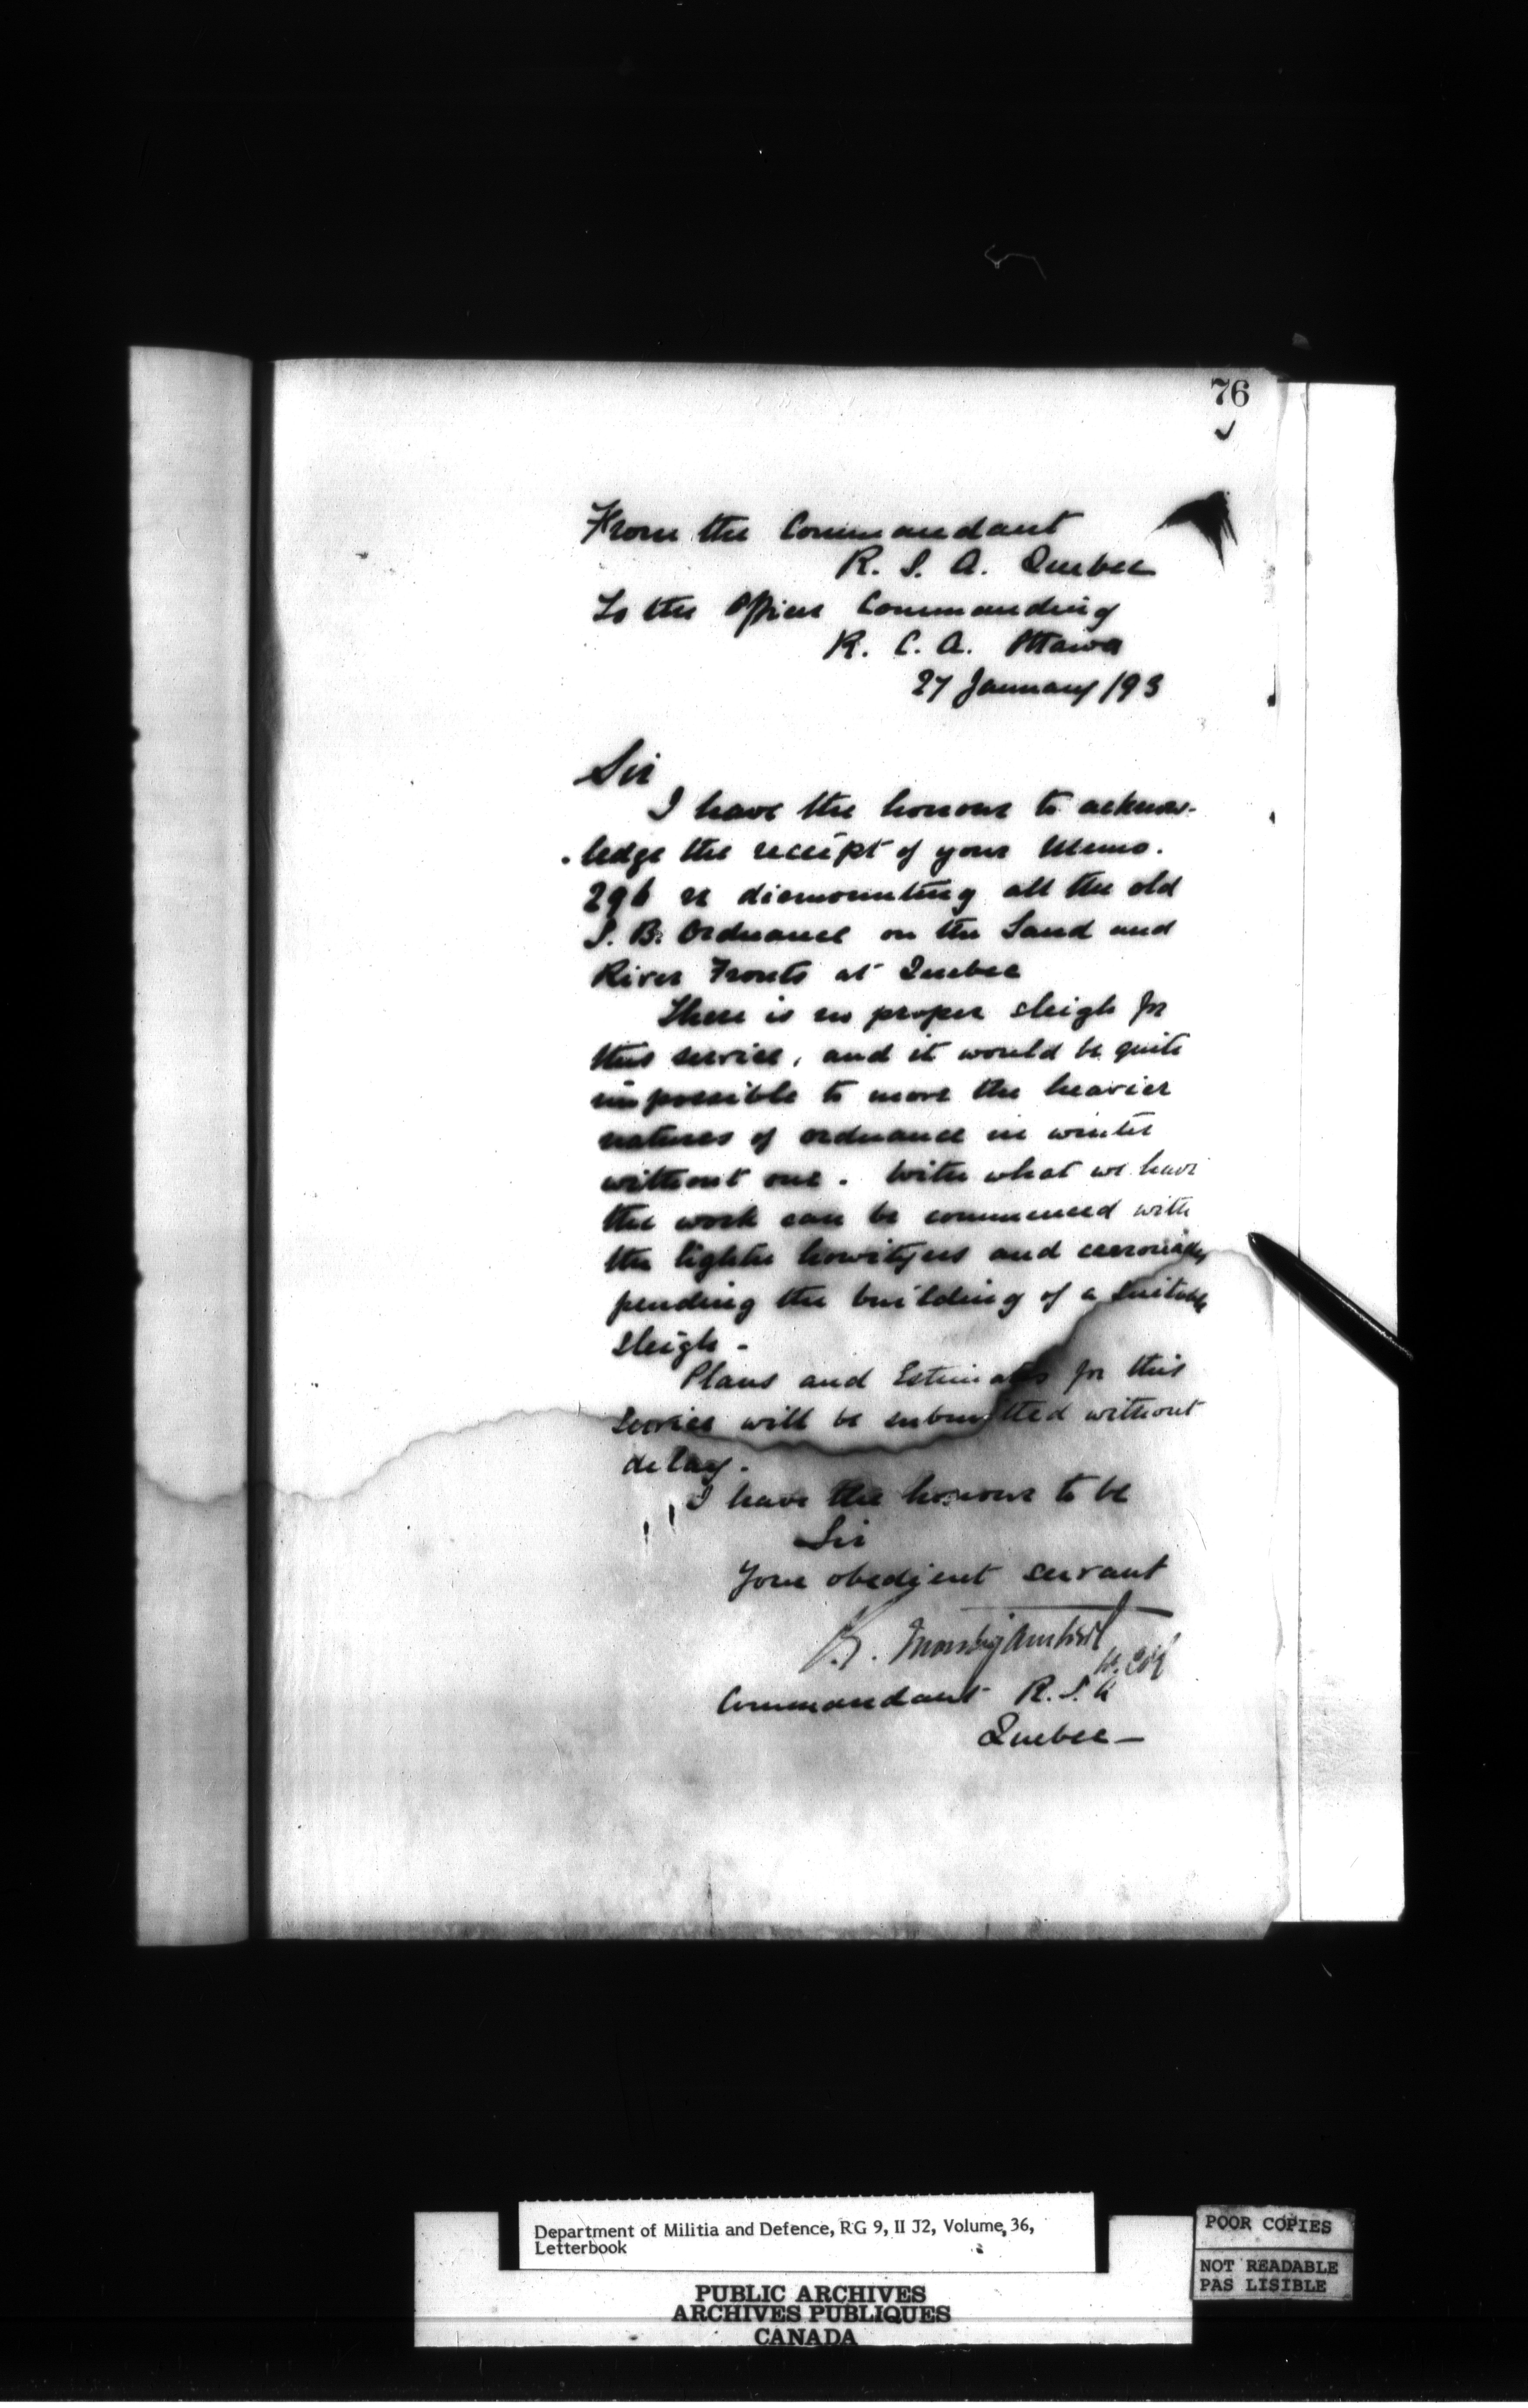 76
From the Commandant
R. S. A. Quebec
To the Officer Commanding
R. C. A. Ottawa
27 January /93
Sir
I have the honour to acknow-
. ledge the receipt of your Memo.
296 re dismounting all the old
S. B. Ordnance on the Land and
River Fronts at Quebec
There is no proper sleigh for
this service, and it would be quite
impossible to move the heavier
natures of ordnance in winter
without one. With what we have
the work can be commenced with
the lighter howitzers and carronades
pending the building of a suitable
sleigh -
Plans and Estimates for this
Service will be submitted without
delay.
I have the honour to be
Sir
Your obedient servant
Lt. Col
Commandant R. S. A
Quebec -
Department of Militia and Defence, RG 9, II J2, Volume 36,
Letterbook
PUBLIC ARCHIVES
ARCHIVES PUBLIQUES
CANADA
POOR COPIES
NOT READABLE
PAS LISIBLE